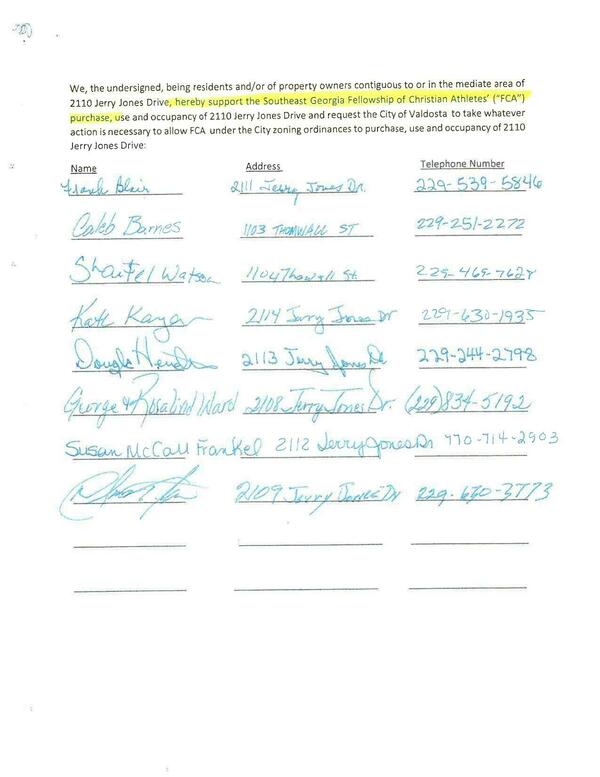 We, the undersigned, being residents and/or of property owners contiguous to or in the mediate area of
2110 Jerry Jones Drive, hereby support the Southeast Georgia Fellowship of Christian Athletes' ("FCA")
purchase, use and occupancy of 2110 Jerry Jones Drive and request the City of Valdosta to take whatever
action is necessary to allow FCA under the City zoning ordinances to purchase, use and occupancy of 2110
Jerry Jones Drive:
Name Address Telephone Number
Frank Blair 2111 Jerry Jones Dr. 229-539-5846
Caleb Barnes 1103 THOMWALL ST 229-251-2272
Shantel Watson 1104 Thomwall St. 229-469-7628
Kate 2114 Jerry Jones Dr 229-630-1935
Dougls 2113 Jerry Jones Dr 229-244-2798
George & Rosalind Ward 2108 Jerry Jones Dr. (229) 834-5192
Susan McCall Frankel 2112 Jerry Jones Dr 770-714-2903
2109 Jerry Jones Dr 229-630-3773